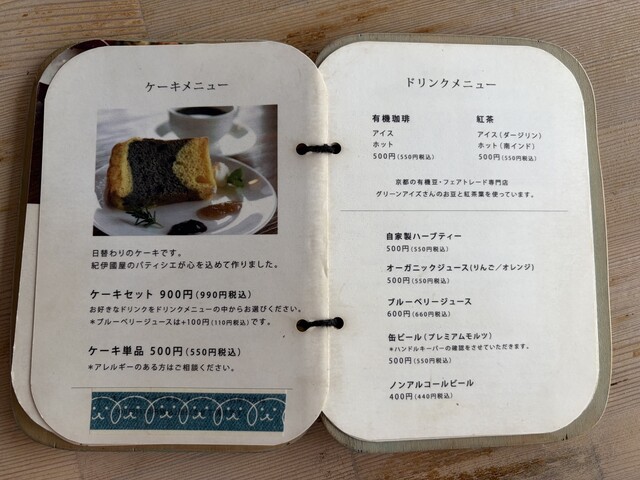 ケーキメニュー
日替わりのケーキです。
紀伊國屋のパティシエが心を込めて作りました。
ケーキセット 900円(990円税込)
お好きなドリンクをドリンクメニューの中からお選びください。
*ブルーベリージュースは+100円(110円税込)です。
ケーキ単品 500円(550円税込)
*アレルギーのある方はご相談ください。
ドリンクメニュー
有機珈琲
アイス
ホット
500円(550円税込)
紅茶
アイス(ダージリン)
ホット(南インド)
500円(550円税込)
京都の有機豆・フェアトレード専門店
グリーンアイズさんのお豆と紅茶葉を使っています。
自家製ハーブティー
500円(550円税込)
オーガニックジュース(りんご/オレンジ)
500円(550円税込)
ブルーベリージュース
600円(660円税込)
缶ビール(プレミアムモルツ)
*ハンドルキーパーの確認をさせていただきます。
500円(550円税込)
ノンアルコールビール
400円(440円税込)